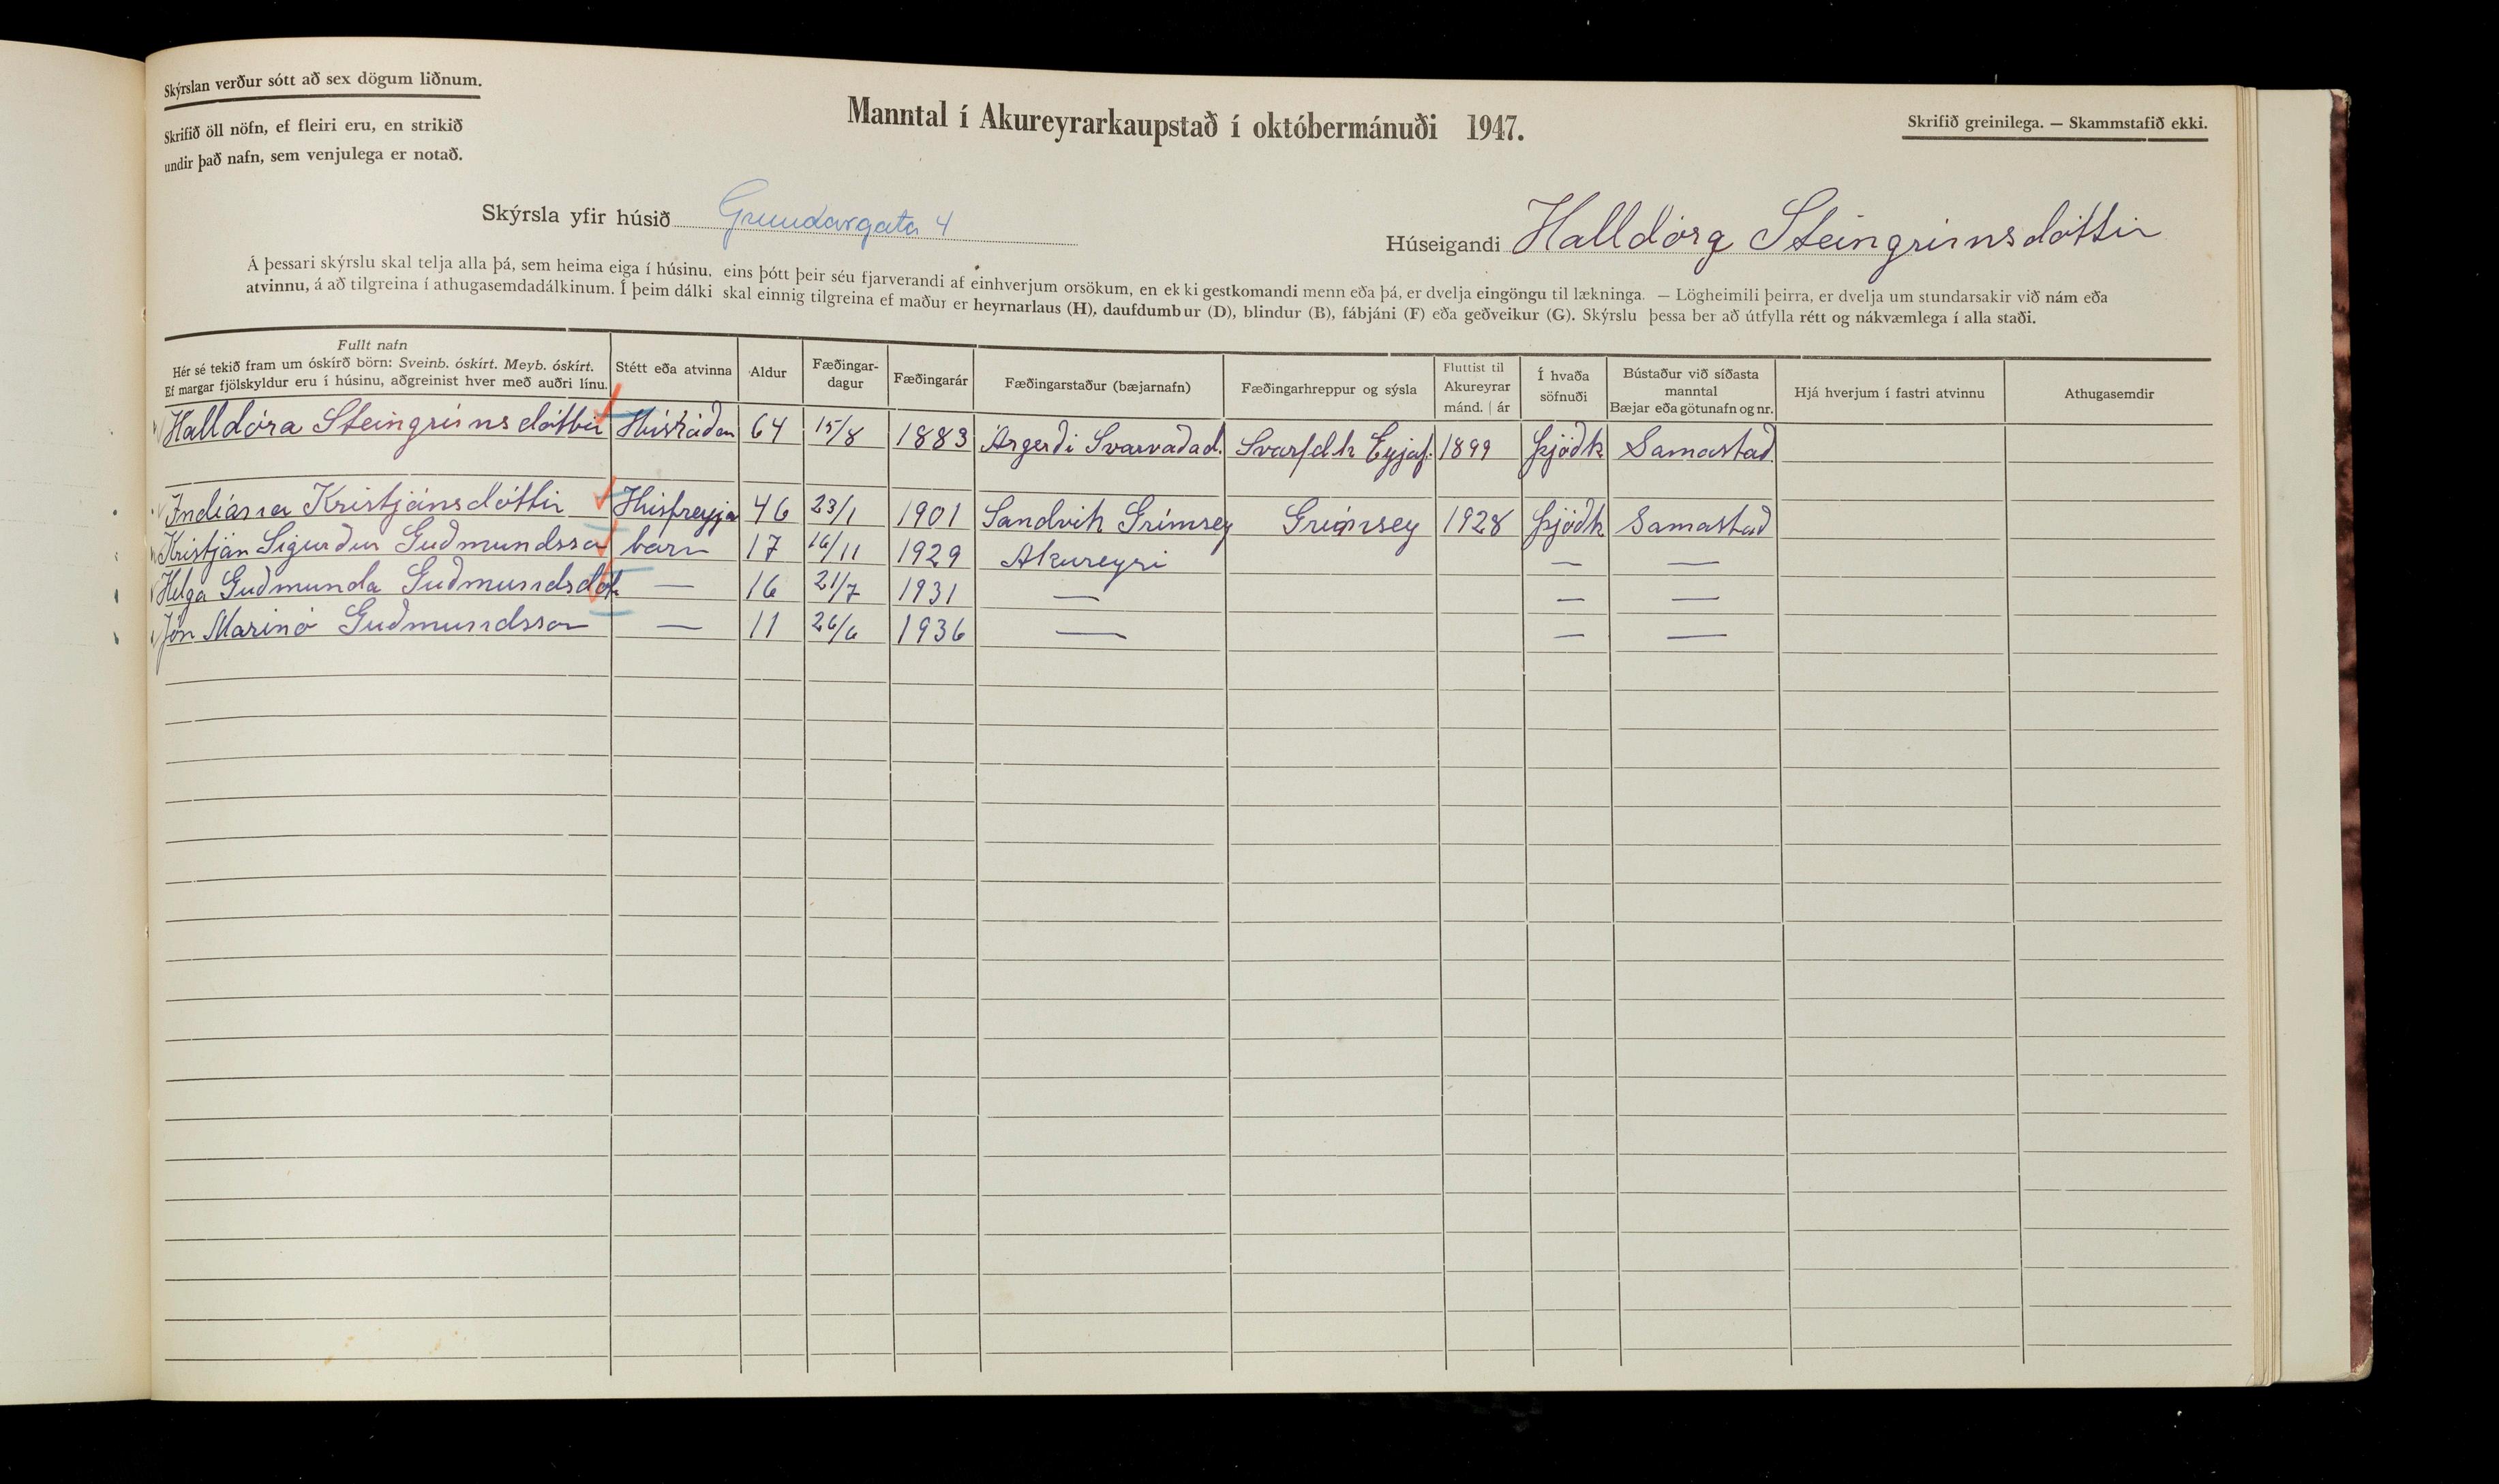 Skýrslan verður sótt að sex dögum liðnum.
Skrifið öll nöfn, ef fleiri eru, en strikið
undir það nafn, sem venjulega er notað.
Manntal í Akureyrarkaupstað í októbermánuði 1947.
Skrifið greinilega. — Skammstafið ekki.
Skýrsla yfir húsið Grundargata 4
Húseigandi Halldóra Steingrímsdóttir
Á þessari skýrslu skal telja alla þá, sem heima eiga í húsinu, eins þótt þeir séu fjarverandi af einhverjum orsökum, en ekki gestkomandi menn eða þá, er dvelja eingöngu til lækninga. — Lögheimili þeirra, er dvelja um stundarsakir við nám eða
atvinnu, á að tilgreina í athugasemdadálkinum. Í þeim dálki skal einnig tilgreina ef maður er heyrnarlaus (H), daufdumbur (D), blindur (B), fábjáni (F) eða geðveikur (G). Skýrslu þessa ber að útfylla rétt og nákvæmlega í alla staði.
Fullt nafn
Hér sé tekið fram um óskírð börn: Sveinb. óskírt. Meyb. óskírt.
Ef margar fjölskyldur eru í húsinu, aðgreinist hver með auðri línu.
Stétt eða atvinna
Aldur
Fæðingar-
dagur
Fæðingarár
Fæðingarstaður (bæjarnafn)
Fæðingarhreppur og sýsla
Fluttist til
Akureyrar
mánd. | ár
Í hvaða
söfnuði
Bústaður við síðasta
manntal
Bæjar eða götunafn og nr.
Hjá hverjum í fastri atvinnu
Athugasemdir
Halldóra Steingrímsdóttir 64 15/8 1883 Argerði Svarvaðad. Svarfd.h Eyjaf. 1899 Þjóðk Samastað
Indíana Kristjánsdóttir Húsfreyja 46 23/1 1901 Sandvík Grímsey Grímsey 1928 Þjóðk Samastað
Kristján Sigurður Guðmundsson barn 17 16/11 1929 Akureyri — —
Helga Guðmunda Guðmundsdót. — 16 21/7 1931 — — —
Jón Marinó Guðmundsson — 11 26/6 1936 — — —